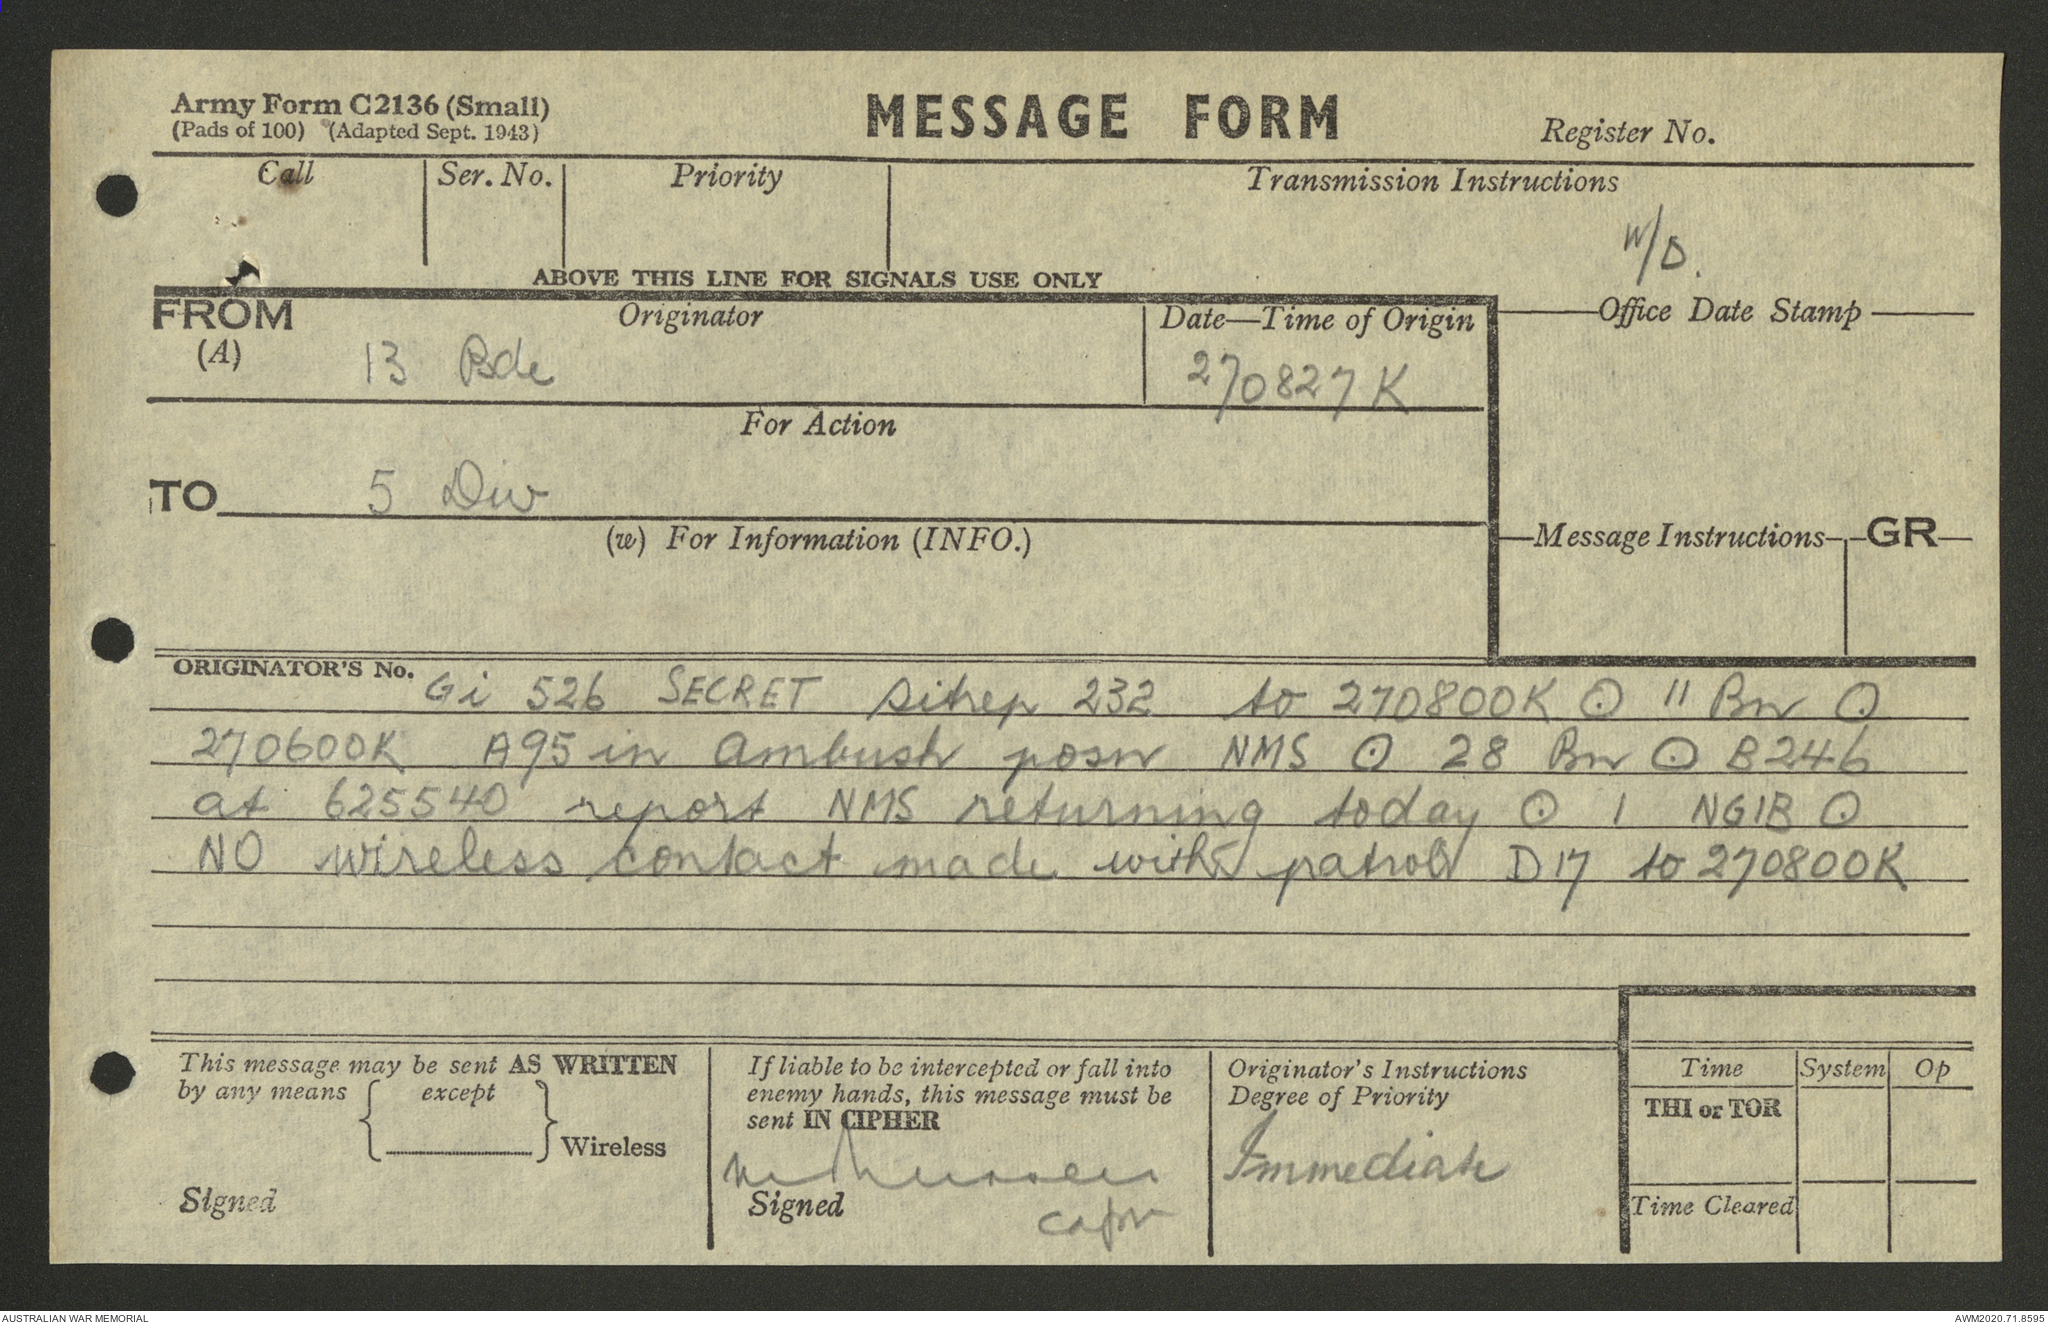 Army Form C2136 (Small)
(Pads of 100) (Adapted Sept. 1943)
MESSAGE FORM
Register No.
Call
Ser. No.
Priority
Transmission Instructions
W/D.
ABOVE THIS LINE FOR SIGNALS USE ONLY
FROM
(A)
Originator
13 Bde
Date—Time of Origin
270827K
Office Date Stamp
For Action
TO
5 Div
(w) For Information (INFO.)
Message Instructions
GR
ORIGINATOR'S No.
Gi 526 SECRET sitrep 232 to 270800K ⊙ 11 Bn ⊙
270600K A95 in ambush posn NMS ⊙ 28 Bn ⊙ B246
at 625540 report NMS returning today ⊙ 1 NGIB ⊙
NO wireless contact made with patrol D17 to 270800K
This message may be sent AS WRITTEN
by any means { except } Wireless
Signed
If liable to be intercepted or fall into
enemy hands, this message must be
sent IN CIPHER
Signed
capt
Originator's Instructions
Degree of Priority
Immediate
Time
System
Op
THI or TOR
Time Cleared
AUSTRALIAN WAR MEMORIAL
AWM2020.71.8595